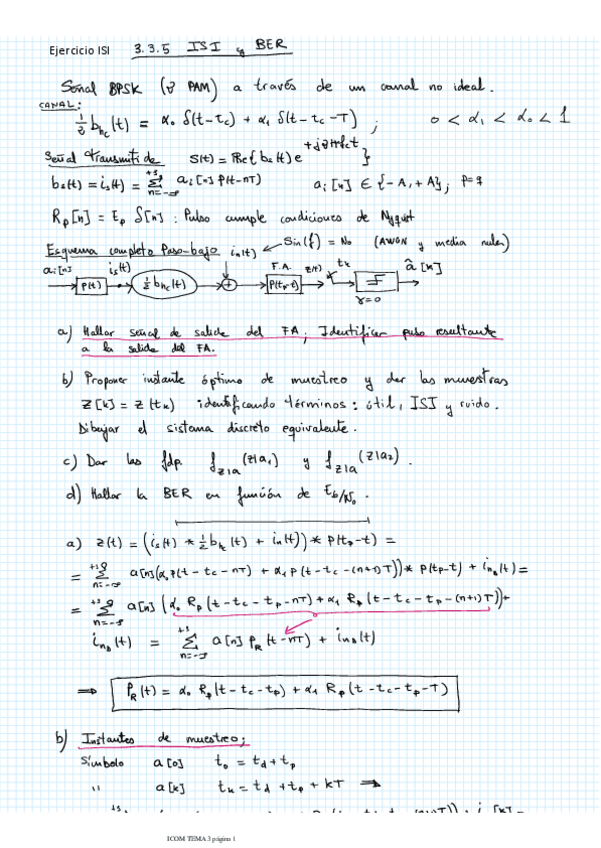 Ejercicio ISI 3.3.5 ISI y BER
Señal BPSK (o PAM) a través de un canal no ideal.
CANAL:
½ b_hc(t) = α₀ δ(t-t_c) + α₁ δ(t-t_c-T) ; 0 < α₁ < α₀ < 1
Señal transmitida s(t) = Re{ b_s(t) e^{+j2πf_ct} }
b_s(t) = i_s(t) = Σ_{n=-∞}^{+∞} a_i[n] p(t-nT) a_i[n] ∈ {-A, +A};
R_p[n] = E_p δ[n] : Pulso cumple condiciones de Nyquist
Esquema completo Paso-bajo i_n(t) S_in(f) = N₀ (AWGN y media nula)
a_i[n] i_s(t) F.A. z(t) t_k â[k]
p(t) ½ b_hc(t) + p(t_p-t) γ=0
a) Hallar señal de salida del FA; Identificar pulso resultante
a la salida del FA.
b) Proponer instante óptimo de muestreo y dar las muestras
z[k] = z(t_k) identificando términos: útil, ISI y ruido.
Dibujar el sistema discreto equivalente.
c) Dar las fdp f_{z|a}(z|a₁) y f_{z|a}(z|a₂).
d) Hallar la BER en función de E_b/N₀.
a) z(t) = (i_s(t) * ½ b_hc(t) + i_n(t)) * p(t_p-t) =
= Σ_{n=-∞}^{+∞} a[n](α₀ p(t-t_c-nT) + α₁ p(t-t_c-(n+1)T)) * p(t_p-t) + i_n₀(t) =
= Σ_{n=-∞}^{+∞} a[n] (α₀ R_p(t-t_c-t_p-nT) + α₁ R_p(t-t_c-t_p-(n+1)T)) +
i_n₀(t) = Σ_{n=-∞}^{+∞} a[n] p_R(t-nT) + i_n₀(t)
⟹ p_R(t) = α₀ R_p(t-t_c-t_p) + α₁ R_p(t-t_c-t_p-T)
b) Instantes de muestreo;
Símbolo a[0] t₀ = t_d + t_p
" a[k] t_k = t_d + t_p + kT ⟹
ICOM TEMA 3 página 1